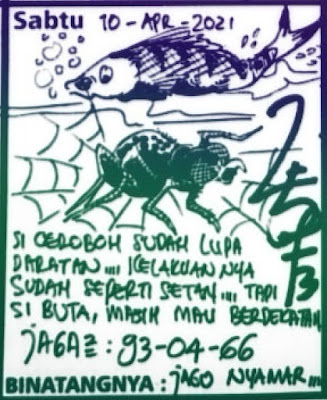 Sabtu 10-APR-2021
SI CEROBOH SUDAH LUPA
DARATAN.... KELAKUAN NYA
SUDAH SEPERTI SETAN.... TAPI
SI BUTA, MASIH MAU BERDEKATAN
JAGA2 : 93-04-66
BINATANGNYA : JAGO NYAMAR...